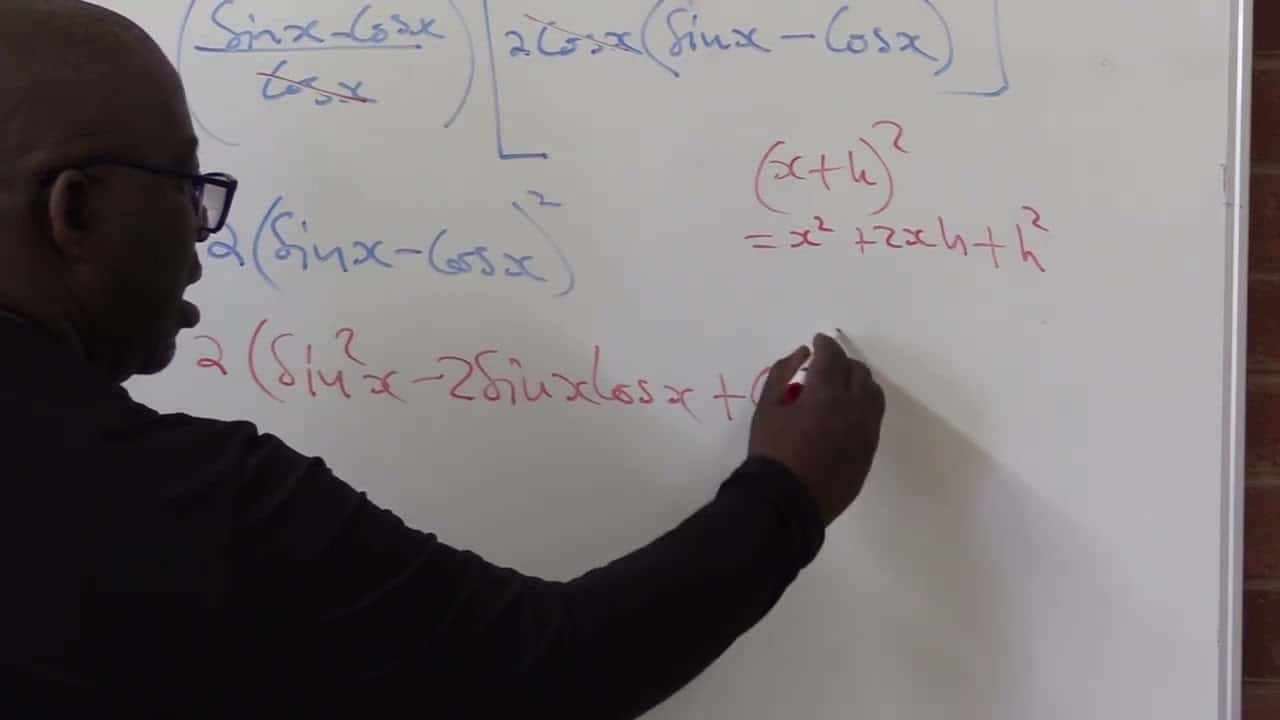 (Sinx - Cosx / Cosx) [2Cosx(Sinx - Cosx)]
(x+h)²
= x² + 2xh + h²
2(Sinx - Cosx)²
2(Sin²x - 2SinxCosx + (